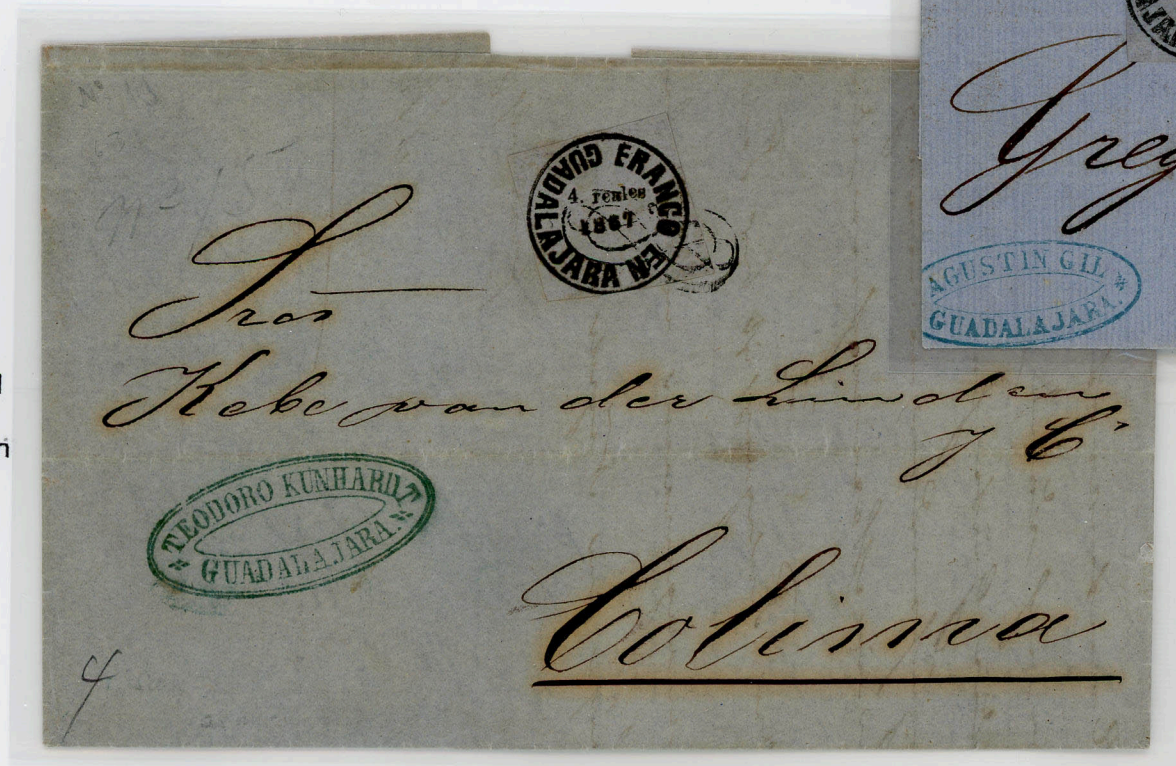 Nº 12
FRANCO EN
GUADALAJARA
4. reales
1867
Sres
Kebe van der Linden
y Cª
TEODORO KUNHARDT
GUADALAJARA.
Colima
4
Greg
AGUSTIN GIL
GUADALAJARA.